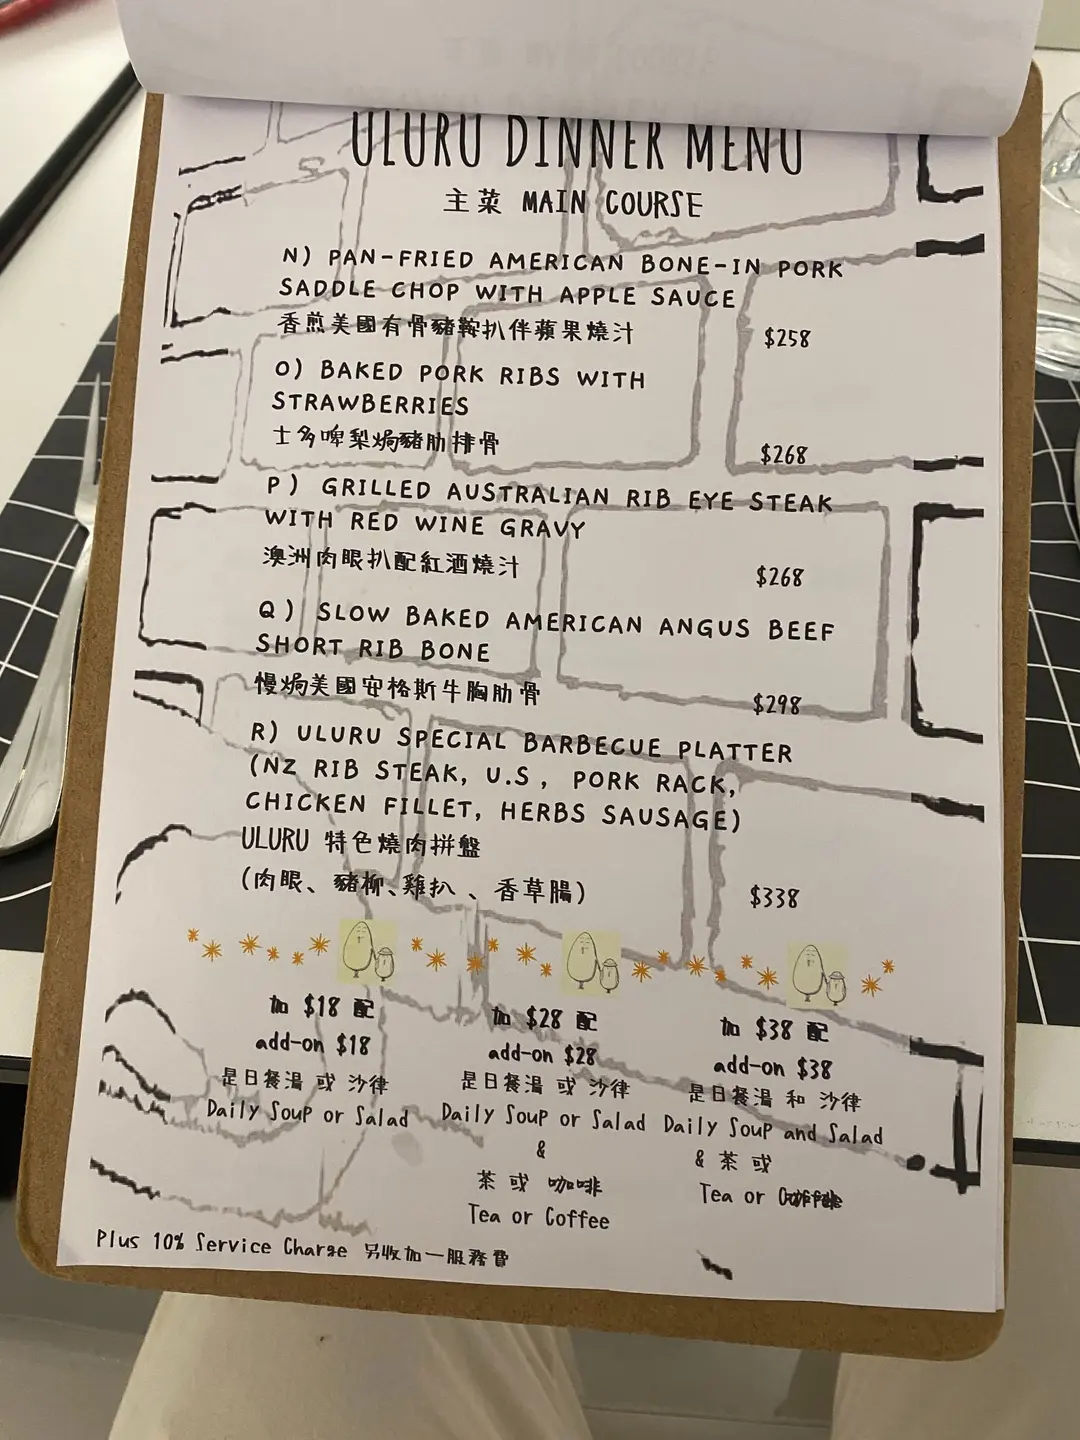 ULURU DINNER MENU
主菜 MAIN COURSE
N) PAN-FRIED AMERICAN BONE-IN PORK
SADDLE CHOP WITH APPLE SAUCE
香煎美國有骨豬鞍扒伴蘋果燒汁 $258
O) BAKED PORK RIBS WITH
STRAWBERRIES
士多啤梨焗豬肋排骨 $268
P) GRILLED AUSTRALIAN RIB EYE STEAK
WITH RED WINE GRAVY
澳洲肉眼扒配紅酒燒汁 $268
Q) SLOW BAKED AMERICAN ANGUS BEEF
SHORT RIB BONE
慢焗美國安格斯牛胸肋骨 $298
R) ULURU SPECIAL BARBECUE PLATTER
(NZ RIB STEAK, U.S, PORK RACK,
CHICKEN FILLET, HERBS SAUSAGE)
ULURU 特色燒肉拼盤
(肉眼、豬柳、雞扒、香草腸) $338
加 $18 配
add-on $18
是日餐湯 或 沙律
Daily Soup or Salad
加 $28 配
add-on $28
是日餐湯 或 沙律
Daily Soup or Salad
&
茶 或 咖啡
Tea or Coffee
加 $38 配
add-on $38
是日餐湯 和 沙律
Daily Soup and Salad
& 茶 或
Tea or
Plus 10% Service Charge 另收加一服務費